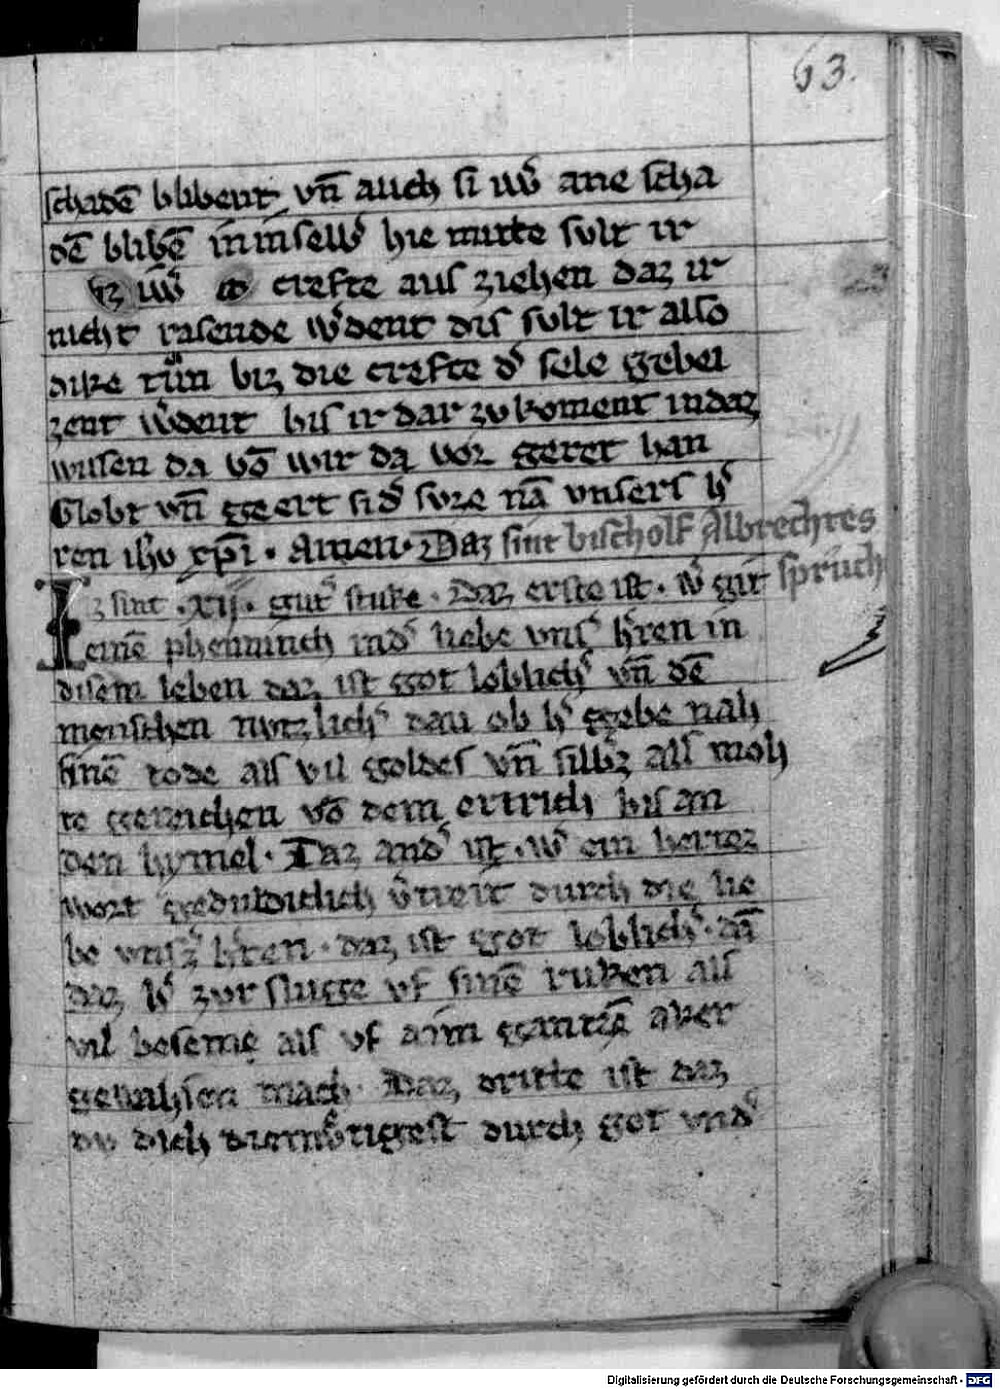 63.
schadē blibent vn̄ auch si uw̄ ane scha
dē blibē in in selbͬ hie mitte sult ir
crefte aus ziehen daz ir
nicht rasende wͬdent dis sult ir also
dike tůn biz die crefte dͬ sele gebei
zent wͬdent bis ir dar zu koment in daz
wisen da vō wir da vor geret han
Globt vn̄ geert si dͬ suze nā unsers hͬ
ren ihū xp̄i · Amen · Daz sint bischolf Albrechtes
Iz sint · xij · gutͬ stuke · Daz erste ist · wͬ git spruch
einē phenninch in dͬ liebe unsͬ hͬren in
disem leben daz ist got loblichͬ vn̄ dē
menschen nutzlichͬ dan ob hͬ gebe nah
sinē tode als vil goldes vn̄ silbͬz als moh
te gereichen vō dem ertrich bis an
den hymel · Daz andͬ ist · wͬ ein hertez
wort gedulditlich vͬtreit durch die lie
be unsͬz hͬren · daz ist got loblichͬ · dā
daz hͬ zur sluge uf sinē ruken als
vil beseme als uf aim gantzē aker
gewahsen mach · Daz dritte ist daz
du dich diemͮtigest durch got undͬ
Digitalisierung gefördert durch die Deutsche Forschungsgemeinschaft - DFG